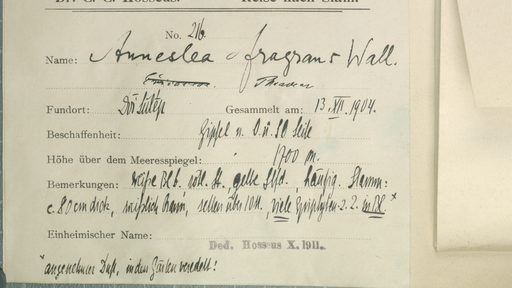 Dr. C. C. Hosseus. Reise nach Siam.
No. 216.
Name: Anneslea fragrans Wall.
Theaceae
Fundort: Doi Sutép Gesammelt am: 13. XII. 1904.
Beschaffenheit: Gipfel u. O. u. SO Seite
Höhe über dem Meeresspiegel: 1700 m.
Bemerkungen: weiße Bl b. röthl. St., gelbe Stfd., häufig. Stamm:
c. 80 cm dick, weißlich braun, selten über 10 m, viele Epiphyten z. Z. in Bl.*
Einheimischer Name:
Ded. Hosseus X. 1911.
*angenehmer Duft, in den Gärten veredelt!